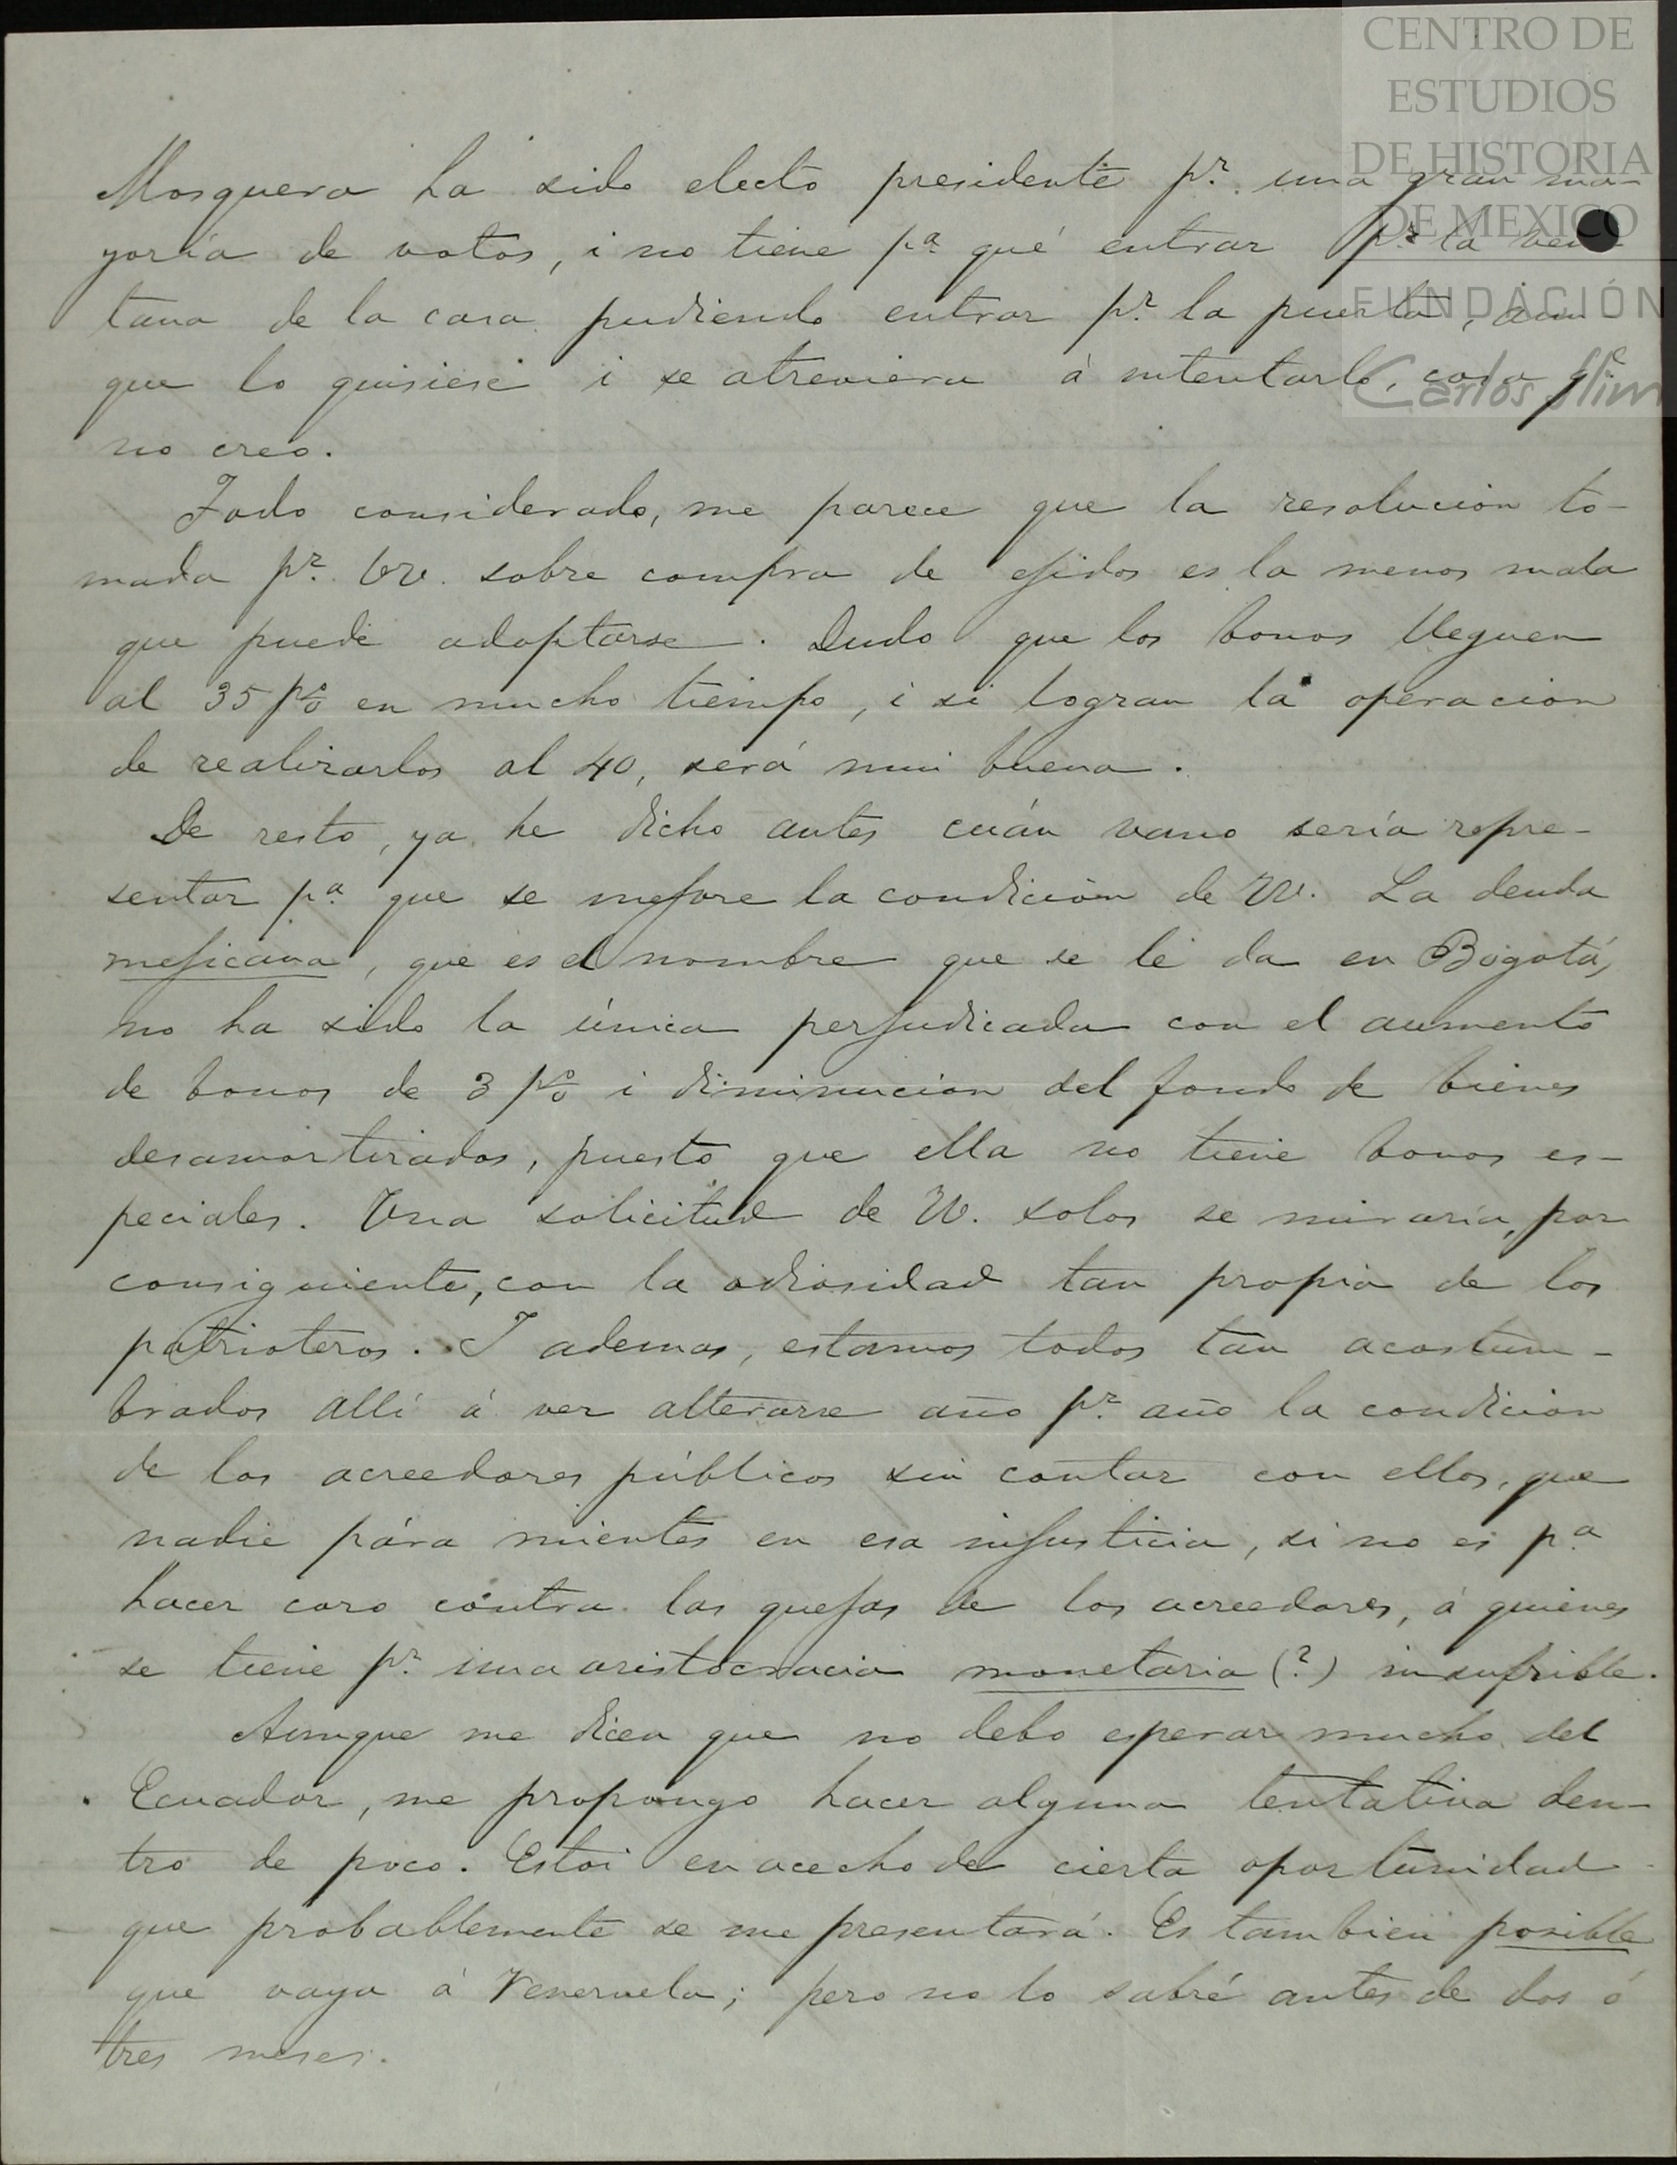 CENTRO DE
ESTUDIOS
DE HISTORIA
DE MEXICO
FUNDACIÓN
Carlos Slim
Mosquera ha sido electo presidente pr. una gran ma-
yoría de votos, i no tiene pa. qué entrar pr. la ven-
tana de la casa pudiendo entrar pr. la puerta, aun
que lo quisiese i se atreviera á intentarlo, cosa qe.
no creo.
Todo considerado, me parece que la resolucion to-
mada pr. VV. sobre compra de ejidos es la menos mala
que puede adoptarse. Dudo que los bonos lleguen
al 35 p% en mucho tiempo, i si logran la operacion
de realizarlos al 40, será mui buena.
De resto, ya he dicho antes cuán vano sería repre-
sentar pa. que se mejore la condicion de VV. La deuda
mejicana, que es el nombre que se le da en Bogotá,
no ha sido la única perjudicada con el aumento
de bonos de 3 p% i diminucion del fondo de bienes
desamortizados, puesto que ella no tiene bonos es-
peciales. Una solicitud de VV. solos se miraría, por
consiguiente, con la odiosidad tan propia de los
patrioteros. I ademas, estamos todos tan acostum-
brados allí á ver alterarse año pr. año la condicion
de los acreedores públicos sin contar con ellos, que
nadie pára mientes en esa injusticia, si no es pa.
hacer coro contra las quejas de los acreedores, á quienes
se tiene pr. una aristocracia monetaria (?) insufrible.
Aunque me dicen que no debo esperar mucho del
Ecuador, me propongo hacer alguna tentativa den-
tro de poco. Estoi en acecho de cierta oportunidad
que probablemente se me presentará. Es tambien posible
que vaya á Venezuela; pero no lo sabré antes de dos ó
tres meses.